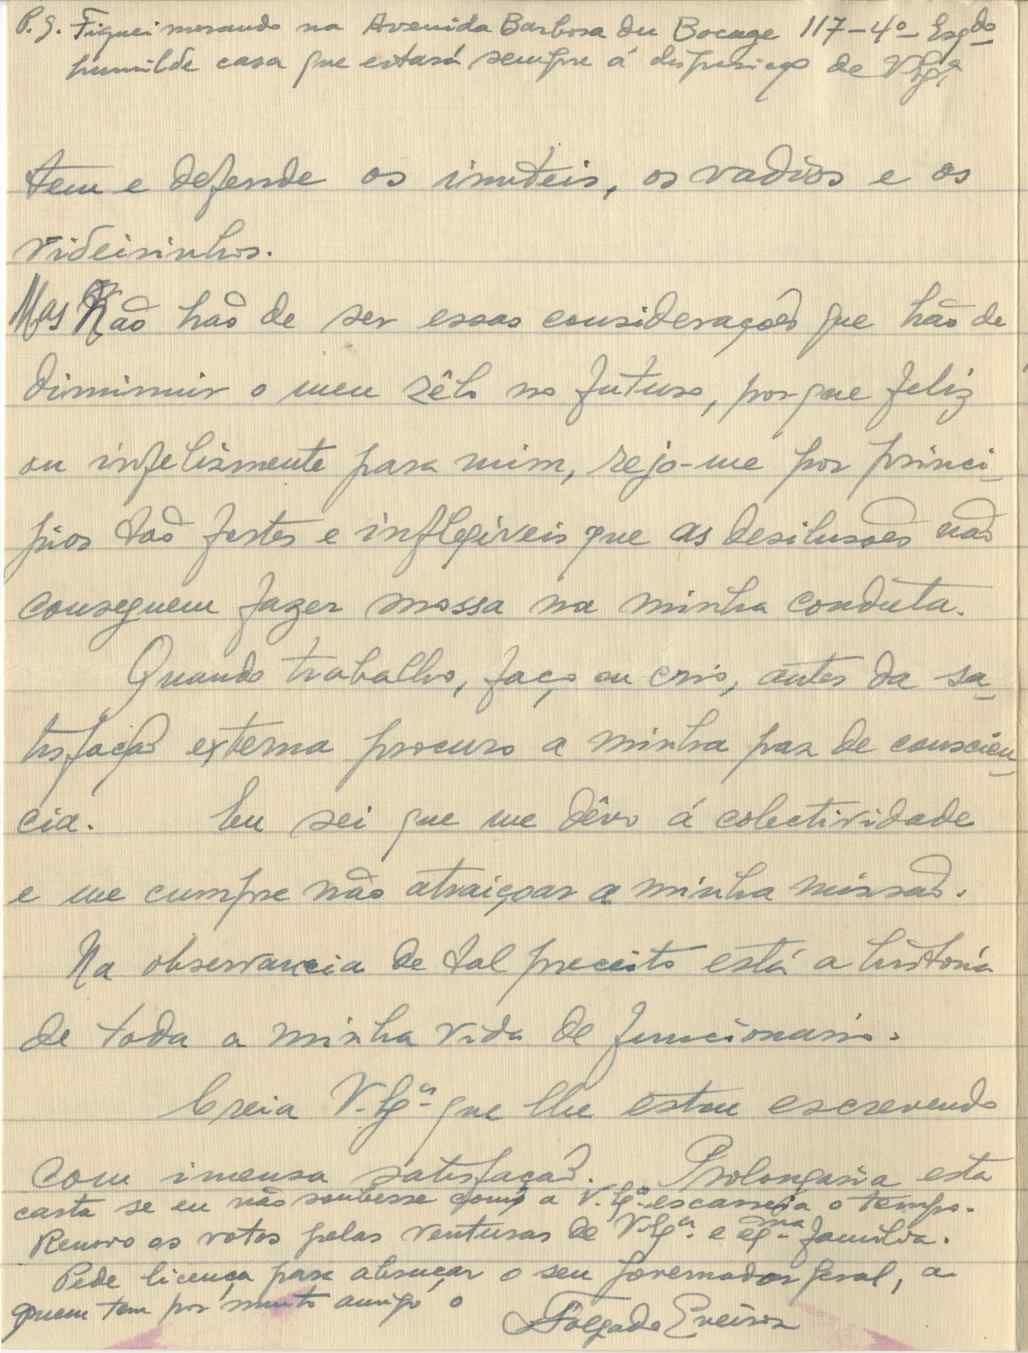 P.S. Fiquei morando na Avenida Barbosa du Bocage 117-4º Esqdo
humilde casa que estará sempre á disposição de V. Exª.
tem e defende os inuteis, os vadios e os
videirinhos.
Mas Não hão de ser essas considerações que hão de
diminuir o meu zêlo no futuro, porque feliz
ou infelizmente para mim, rejo-me por princi-
pios tão fortes e inflegiveis que as desilusões não
conseguem fazer mossa na minha conduta.
Quando trabalho, faço ou crio, antes da sa-
tisfação externa procuro a minha paz de consciên-
cia. Eu sei que me dêvo á colectividade
e me cumpre não atraiçoar a minha missão.
Na observancia de tal preceito está a história
de toda a minha vida de funcionario.
Creia V. Exª. que lhe estou escrevendo
com imensa satisfação. Prolongaria esta
carta se eu não soubesse como a V. Exª. escasseia o tempo.
Renovo os votos pelas venturas de V. Exª. e Exma. familia.
Pede licença para abraçar o seu governador geral, a
quem tem por muito amigo o